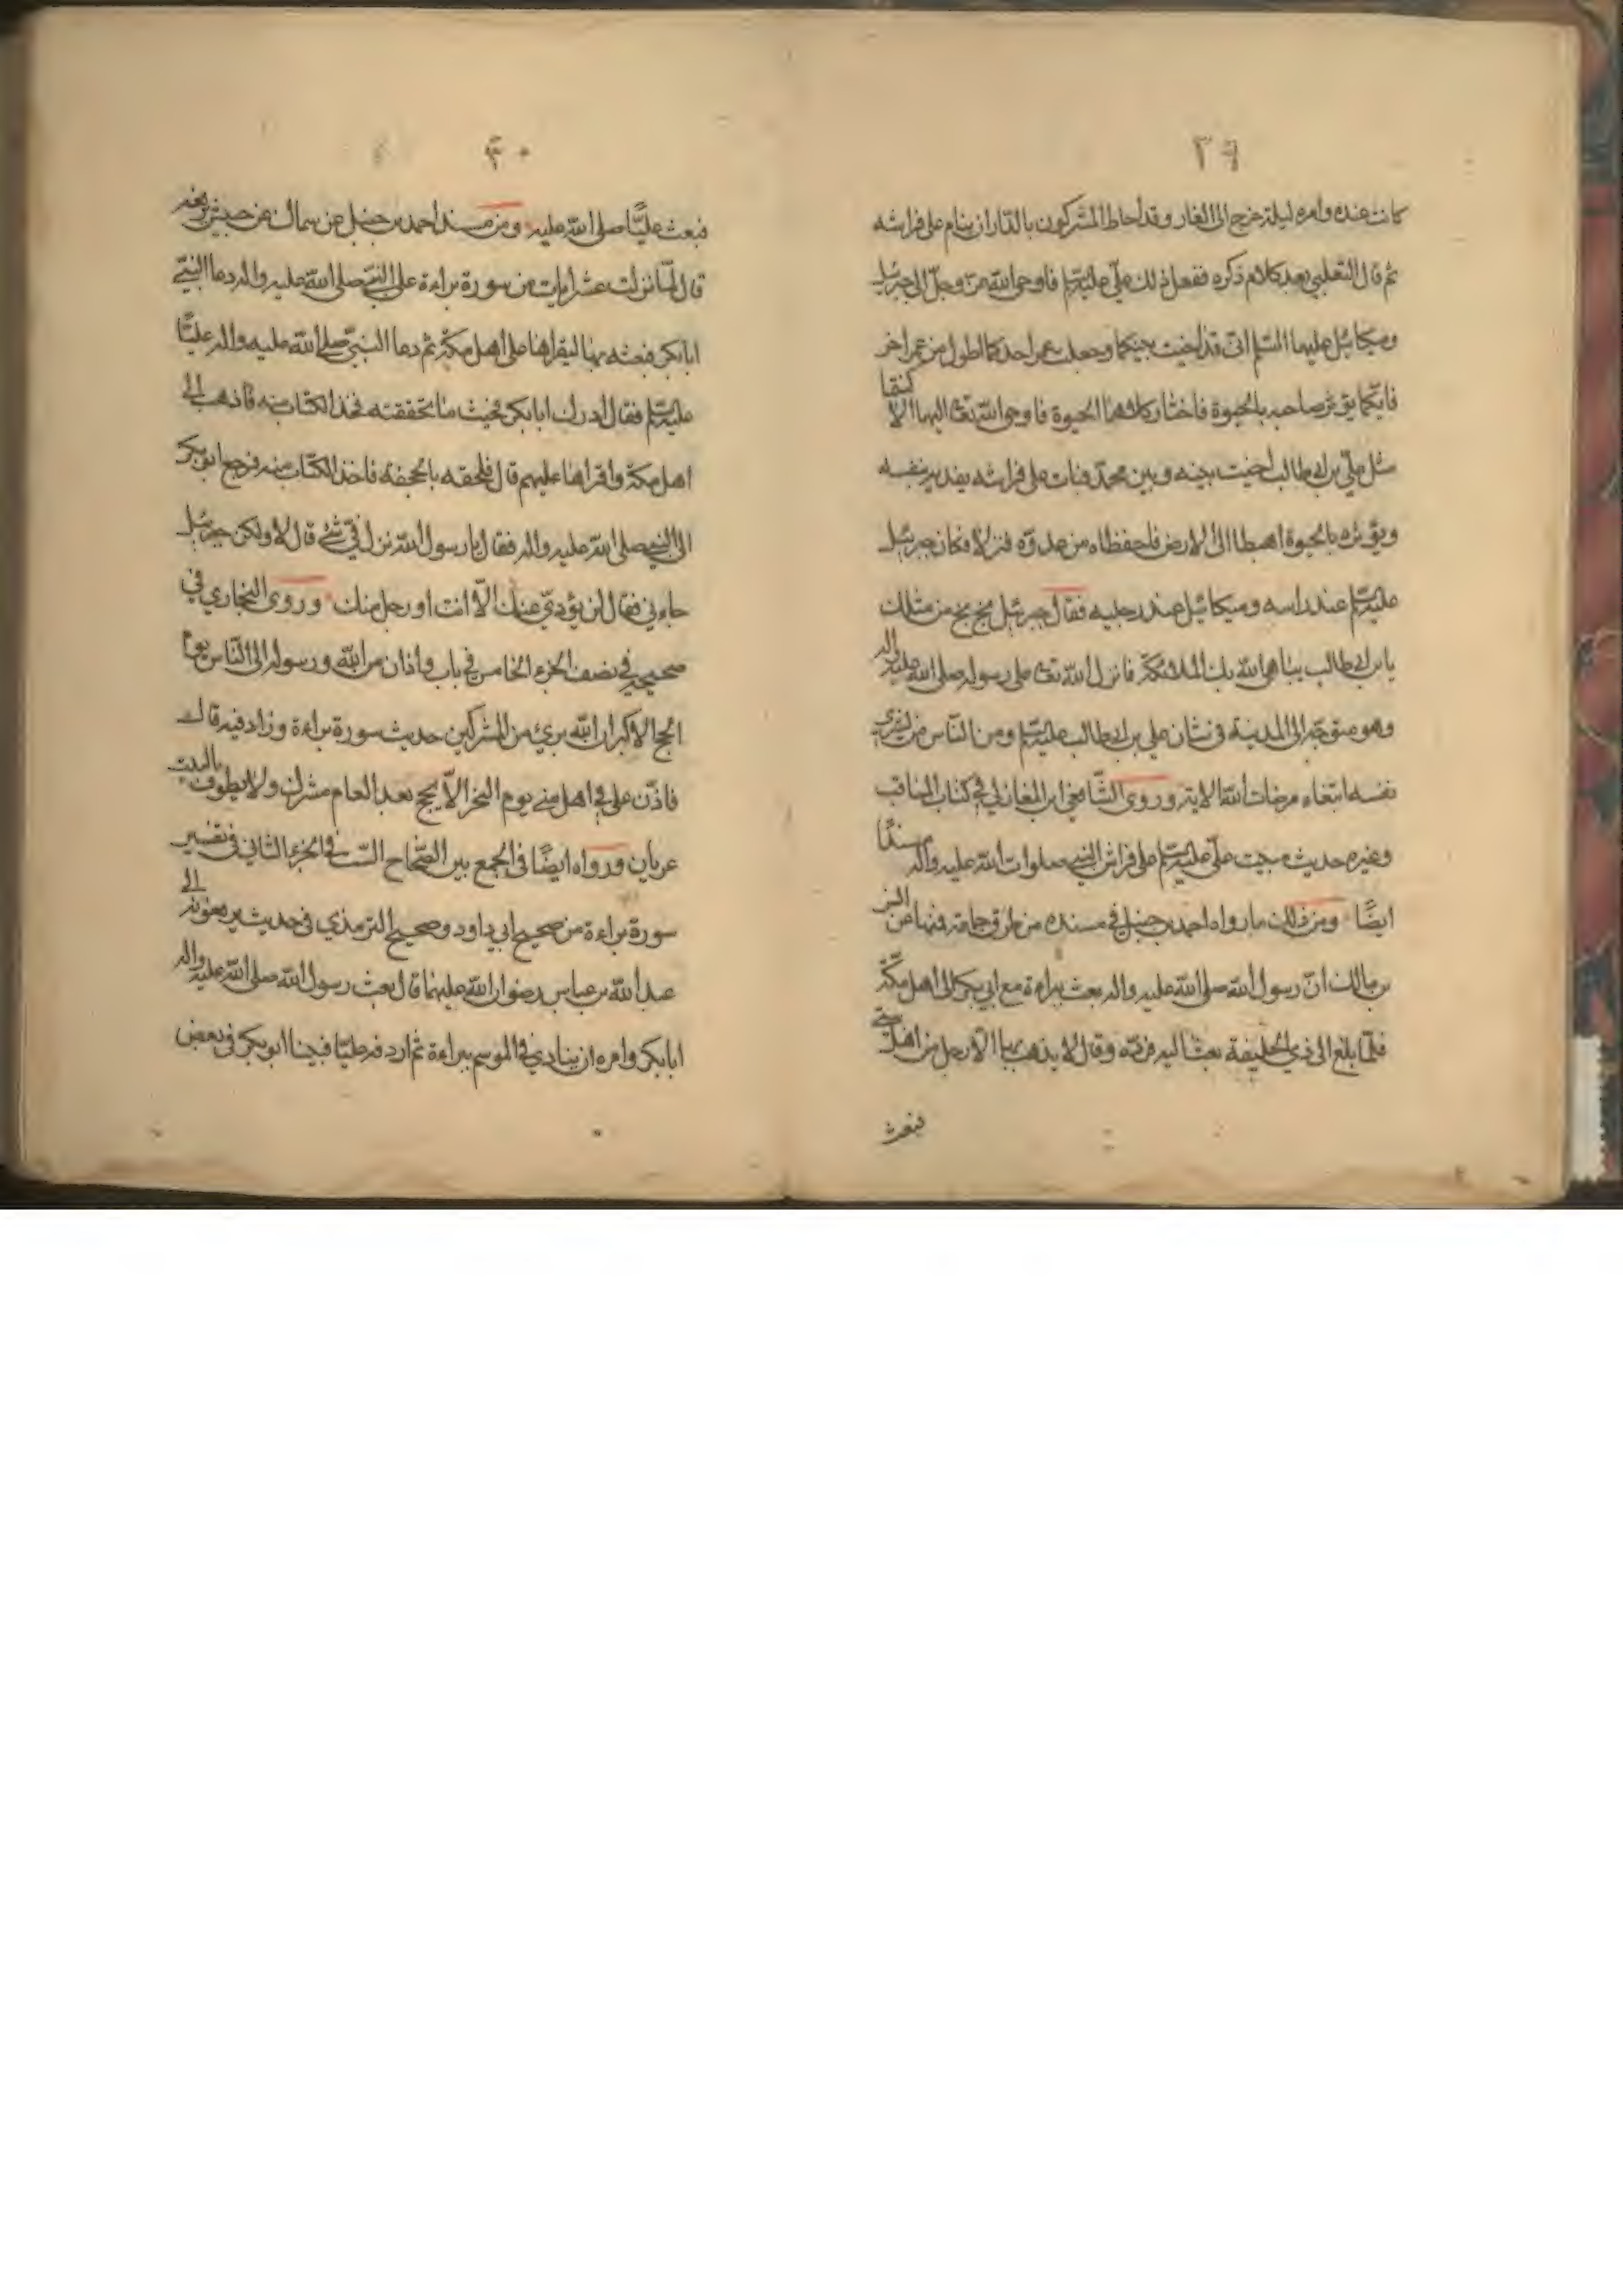 ٣٩
كانت عنده وامره ليلة خرج الى الغار وقد احاط المشركون بالدّار ان ينام على فراشه
ثم قال الثعلبي بعد كلام ذكره ففعل ذلك عليّ عليه السّلم فاوحى الله عزّ وجلّ الى جبرئيل
وميكائيل عليهما السّلم انّى قد اخيت بينكما وجعلت عمر احدكما اطول من عمر اخر
فايّكما يؤثر صاحبه بالحيوة فاختار كلاهما الحيوة فاوحى الله تعالى اليهما الا كنتما
مثل عليّ بن ابي طالب اخيت بينه وبين محمّد فبات على فراشه يفديه بنفسه
ويؤثره بالحيوة اهبطا الى الارض فاحفظاه من عدوّه فنزلا فكان جبرئيل
عليه السّلم عند راسه وميكائيل عند رجليه فقال جبرئيل بخ بخ من مثلك
يا بن ابي طالب يباهى الله بك الملائكة فانزل الله تعالى على رسوله صلى الله عليه واله
وهو متوجّه الى المدينة في شان علي بن ابي طالب عليه السّلم ومن النّاس من يشرى
نفسه ابتغاء مرضات الله الاية وروى الشّافعي ابن المغازلي في كتاب المناقب
وغيره حديث مبيت عليّ عليه السّلم على فراش النبي صلوات الله عليه واله مسندًا
ايضًا ومن ذلك ما رواه احمد بن حنبل في مسنده من طرق جماعة فمنها عن انس
بن مالك انّ رسول الله صلى الله عليه واله بعث براءة مع ابي بكر الى اهل مكّة
فلمّا بلغ الى ذي الحليفة بعث اليه فردّه وقال لا يذهب بها الّا رجل من اهل بيتي
فبعث
٤٠
فبعث عليًّا صلى الله عليه ومن مسند احمد بن حنبل عن سماك عن حبيش يرفعه
قال لمّا نزلت عشر ايات من سورة براءة على النبيّ صلى الله عليه واله دعا النبيّ
ابا بكر فبعثه بها ليقراها على اهل مكّة ثم دعا النبيّ صلى الله عليه واله عليًّا
عليه السّلم فقال ادرك ابا بكر فحيث ما لحقته فخذ الكتاب منه فاذهب الى
اهل مكة واقراها عليهم قال فلحقه بالجحفة فاخذ الكتاب منه فرجع ابو بكر
الى النبي صلى الله عليه واله فقال يا رسول الله نزل فيّ شئ قال لا ولكن جبرئيل
جاءني فقال لن يؤدّي عنك الّا انت او رجل منك وروى البخاري في
صحيحه في نصف الجزء الخامس في باب واذان من الله ورسوله الى النّاس يوم
الحج الاكبر ان الله بريء من المشركين حديث سورة براءة وزاد فيه قال
فاذّن علي في اهل منى يوم النحر الّا يحج بعد العام مشرك ولا يطوف بالبيت
عريان ورواه ايضًا في الجمع بين الصّحاح الستّ في الجزء الثاني في تفسير
سورة براءة من صحيح ابي داود وصحيح الترمذي في حديث يرفعونه الى
عبد الله بن عباس رضوان الله عليهما قال بعث رسول الله صلى الله عليه واله
ابا بكر وامره ان ينادي في الموسم ببراءة ثم اردفه عليّا فبينا ابو بكر في بعض